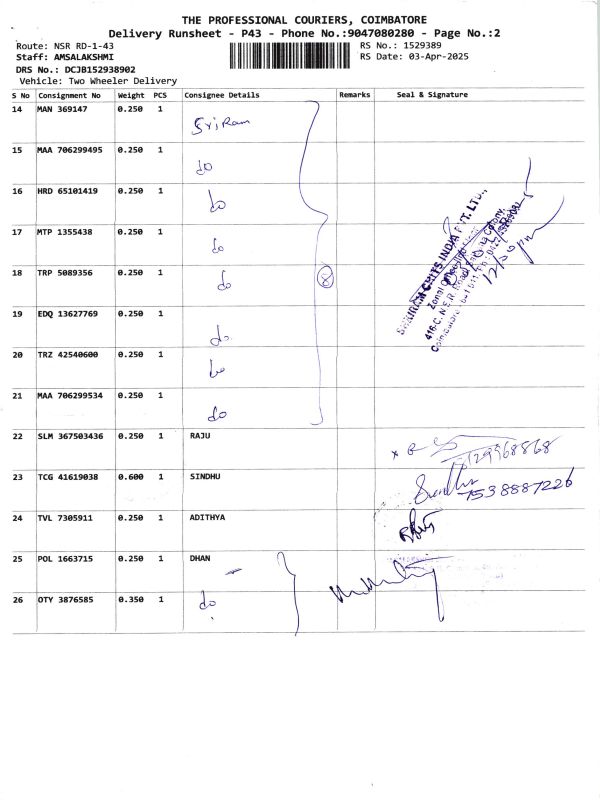 THE PROFESSIONAL COURIERS, COIMBATORE
Delivery Runsheet - P43 - Phone No.:9047080280 - Page No.:2
Route: NSR RD-1-43
RS No.: 1529389
Staff: AMSALAKSHMI
RS Date: 03-Apr-2025
DRS No.: DCJB152938902
Vehicle: Two Wheeler Delivery
S No Consignment No Weight PCS Consignee Details Remarks Seal & Signature
14 MAN 369147 0.250 1 SriRam
15 MAA 706299495 0.250 1 do
16 HRD 65101419 0.250 1 do
17 MTP 1355438 0.250 1 do
18 TRP 5089356 0.250 1 do 8
19 EDQ 13627769 0.250 1 do
20 TRZ 42540600 0.250 1 do
21 MAA 706299534 0.250 1 do
SHRIRAM CHITS INDIA PVT. LTD.,
Zonal Office
416-C, N.S.R. Road, Saibaba Colony,
Coimbatore
22 SLM 367503436 0.250 1 RAJU
23 TCG 41619038 0.600 1 SINDHU Sindhu
7538887226
24 TVL 7305911 0.250 1 ADITHYA
25 POL 1663715 0.250 1 DHAN
26 OTY 3876585 0.350 1 do